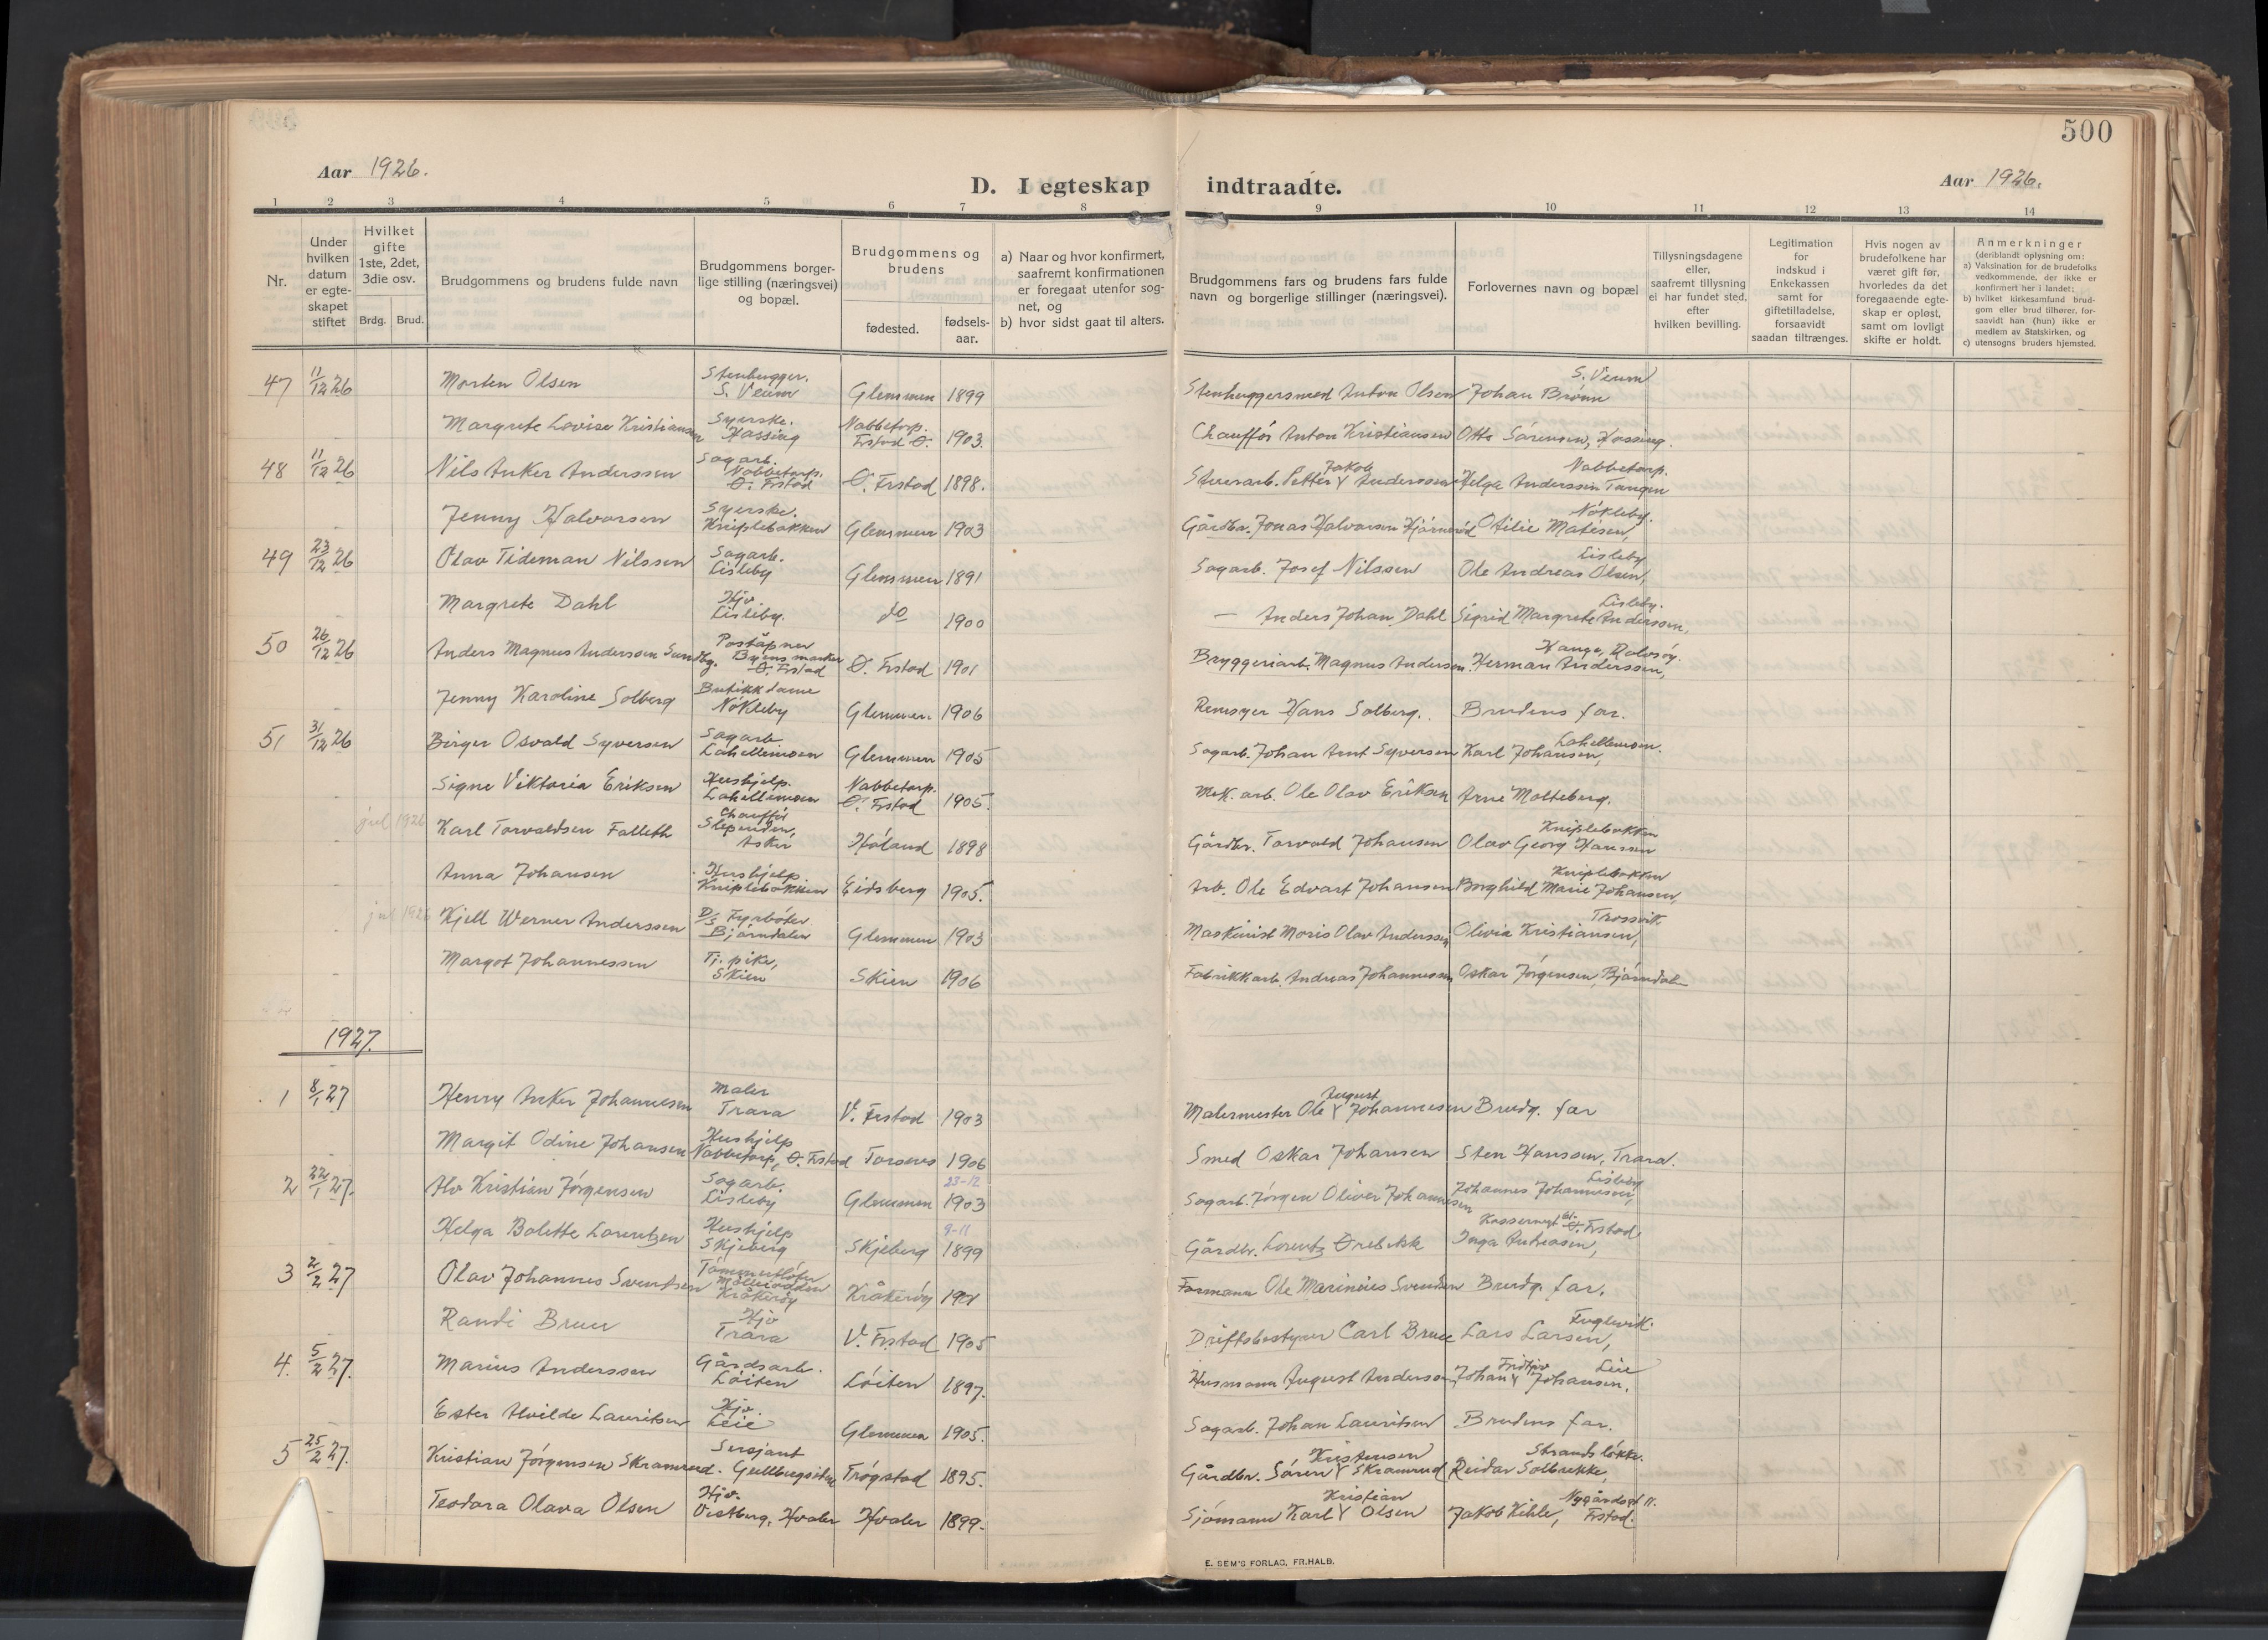 500
Aar 1926.
D. I egteskap indtraadte.
Aar 1926.
1 2 3 4 5 6 7 8 9 10 11 12 13 14
Nr.
Under hvilken datum er egteskapet stiftet
Hvilket gifte 1ste, 2det, 3die osv.
Brdg. Brud.
Brudgommens og brudens fulde navn
Brudgommens borgerlige stilling (næringsvei) og bopæl.
Brudgommens og brudens
fødested.
fødsels-aar.
a) Naar og hvor konfirmert, saafremt konfirmationen er foregaat utenfor sognet, og
b) hvor sidst gaat til alters.
Brudgommens fars og brudens fars fulde navn og borgerlige stillinger (næringsvei).
Forlovernes navn og bopæl
Tillysningsdagene eller, saafremt tillysning ei har fundet sted, efter hvilken bevilling.
Legitimation for indskud i Enkekassen samt for giftetilladelse, forsaavidt saadan tiltrænges.
Hvis nogen av brudefolkene har været gift før, hvorledes da det foregaaende egteskap er opløst, samt om lovligt skifte er holdt.
Anmerkninger (deriblandt oplysning om:
a) Vaksination for de brudefolks vedkommende, der ikke er konfirmert her i landet;
b) hvilket kirkesamfund brudgom eller brud tilhører, forsaavidt han (hun) ikke er medlem av Statskirken, og
c) utensogns bruders hjemsted.
47 11/12 26 Morten Olsen Stenhugger. S. Veum Glemmen 1899 Stenhuggersmed Anton Olsen Johan Brønn S. Veum
Margrete Lovise Kristiansen Syerske. Hassing Nabbetorp. Ø. Frstad 1903. Chauffør Anton Kristiansen Otto Sørensen, Hassing.
48 11/12 26 Nils Anker Anderssen Sagarb. Nabbetorp. Ø. Frstad Ø. Frstad 1898. Petter Jakob Anderssen Helga Anderssen Tangen Nabbetorp.
Jenny Halvorsen Syerske. Kniplebakken Glemmen 1903 Gårdbr. Jonas Halvorsen Otilie Matisen, Nökleby.
49 23/12 26 Olav Tideman Nilssen Sagarb. Lisleby Glemmen 1891 Sagarb. Josef Nilssen Ole Andreas Olsen, Lisleby
Margrete Dahl Hjv. Lisleby. do 1900 — Anders Johan Dahl Sigrid Margrete Anderssen, Lisleby.
50 26/12 26 Anders Magnus Anderssen Poståpner Byens marker Ø. Frstad Ø. Frstad 1901 Bryggeriarb. Magnus Anderssen. Herman Anderssen, Hauge, Rolvsøy.
Jenny Karoline Solberg Butikkdame Nökleby Glemmen. 1906 Hans Solberg. Brudens far.
51 31/12 26 Birger Osvald Syversen Sagarb. Lahellemoen Glemmen 1905 Sagarb. Johan Arnt Syversen Karl Johansen, Lahellemoen.
Signe Viktoria Eriksen Hushjelp. Lahellemoen Nabbetorp. Ø. Frstad 1905. Mek. arb. Ole Olav Eriksen Arne Molteberg.
jul 1926 Karl Torvaldsen Falleth Chauffør Slependen, Asker Höland 1898 Gårdbr. Torvald Johansen Olav Georg Hanssen Kniplebakken
Anna Johansen Hushjelp. Kniplebakken Eidsberg 1905. Arb. Ole Edvart Johansen Borghild Marie Johansen, Kniplebakken
jul 1926 Kjell Werner Anderssen D/S Fyrböter Bjørndalen Glemmen 1903 Maskinist Moris Olav Anderssen Olivia Kristiansen, Trossvik
Margot Johannessen Tj. pike, Skien Skien 1906 Fabrikkarb. Andreas Johannessen Oskar Jörgensen, Bjørndalen
1927.
1 8/1 27 Henry Anker Johannesen Maler Trara V. Frstad 1903 Malermester Ole August Johannesen Brudg. far
Margit Odine Johansen Hushjelp Nabbetorp, Ø. Frstad Torsnes 1906 Smed Oskar Johansen Sten Hanssen, Trara.
2 22/1 27. Alv Kristian Jörgensen Sagarb. Lisleby Glemmen 23-12 1903 Sagarb. Jörgen Oliver Johannesen Johannes Johannesen, Lisleby
Helga Bolette Lorentzen Hushjelp Skjeberg Skjeberg 9-11 1899 Gårdbr. Lorentz Inga Andreasen, Ø. Frstad
3 2/2 27 Olav Johannes Svendsen Tømmerfløter Kråkerøy Kråkerøy 1901 Formann Ole Marinius Svendsen Brudg. far.
Randi Bruu Hjv Trara V. Frstad 1905 Driftsbestyrer Carl Bruu Lars Larsen, Fuglevik.
4. 5/2 27. Marius Anderssen Gårdsarb. Löiten Löiten 1897. Husmann August Anderssen Johan Fridtjov Johansen. Leie
Ester Alvilde Lauritsen Hjv. Leie Glemmen 1905. Sagarb. Johan Lauritsen Brudens far.
5 25/2 27. Kristian Jörgensen Skramrud. Sersjant Trøgstad 1895. Gårdbr. Sören Kristensen Skramrud Reidar Solbrekke, Strandsløkka.
Teodora Olava Olsen Hjv. Hvaler Hvaler 1899. Sjömann Karl Kristian Olsen Jakob Kihle, Nygårdsgt 11. Frstad.
E. SEM'S FORLAG, FR.HALD.